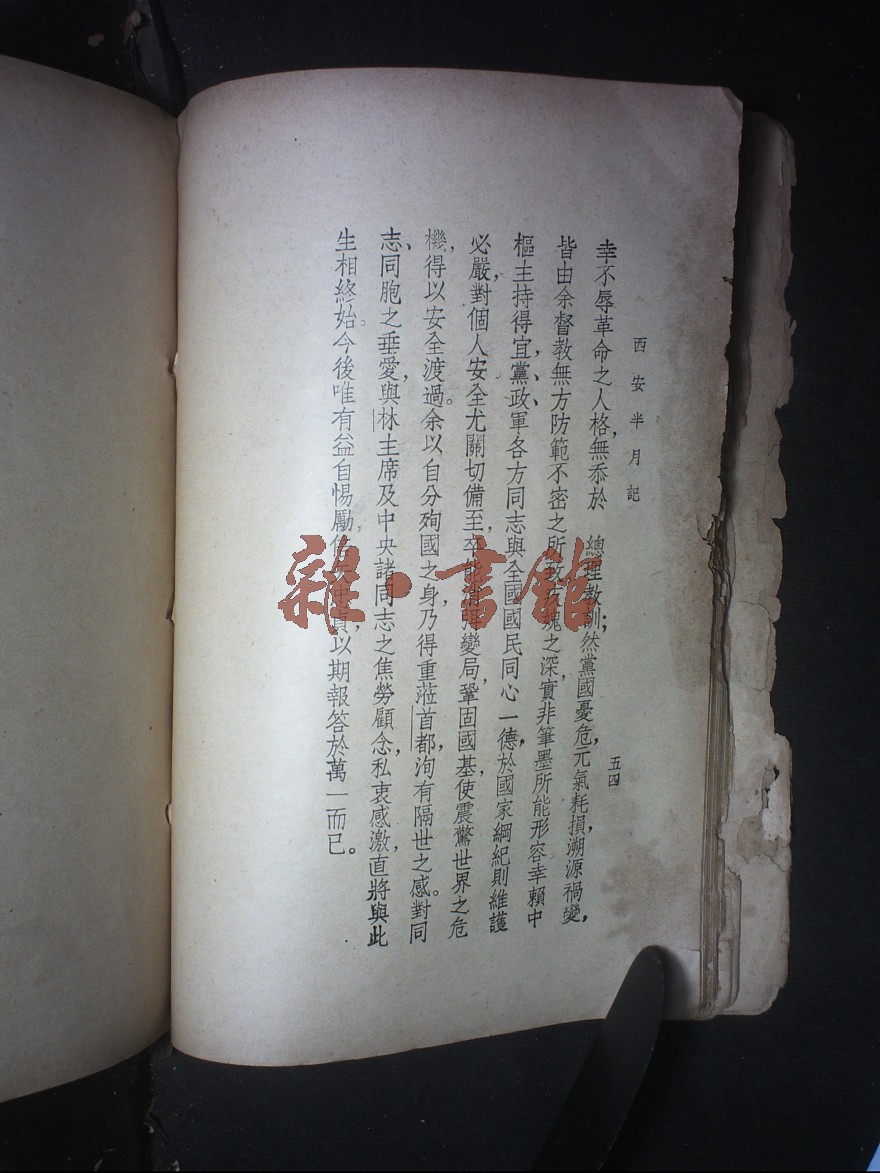 西安半月記
五四
幸不辱革命之人格，無忝於 總理教訓；然黨國憂危，元氣耗損，溯源禍變，
皆由余督教無方防範不密之所致，疚愧之深，實非筆墨所能形容幸賴中
樞主持得宜，黨、政、軍各方同志與全國國民同心一德，於國家綱紀則維護
必嚴，對個人安全尤關切備至，卒能變局，鞏固國基，使震驚世界之危
機，得以安全渡過。余以自分殉國之身，乃得重蒞首都，洵有隔世之感。對同
志、同胞之垂愛，與林主席及中央諸同志之焦勞顧念，私衷感激，直將與此
生相終始。今後唯有益自惕勵，貞，以期報答於萬一而已。
雜·書館